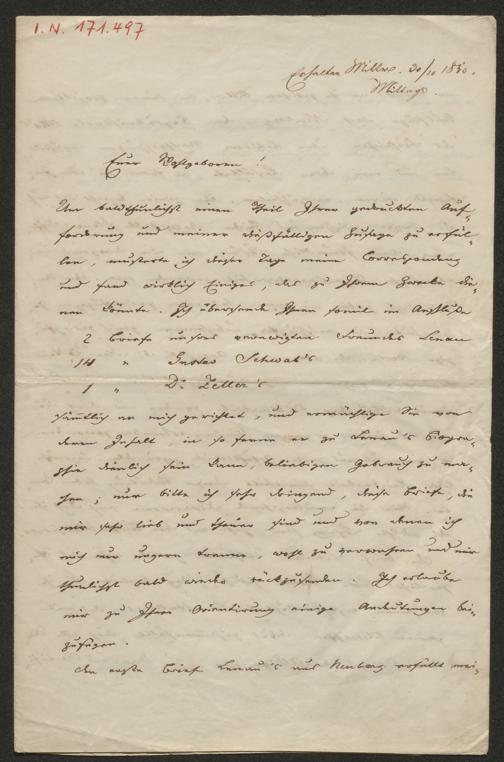 I.N. 171.497
Erhalten Mittw. 30/10 1850.
Mittags.
Euer Wohlgeboren!
Um baldthunlichst einen Theil Ihrer gedruckten Auf-
forderung und meiner dießfälligen Zusage zu erfül-
len, musterte ich dieser Tage meine Correspondenz
und fand wirklich Einiges, das zu Ihrem Zwecke die-
nen könnte. Ich übersende Ihnen somit im Anschluße
2 Briefe unsres verewigten Freundes Lenau
14 " Gustav Schwab's
1 " Dr. Zeller's
sämmtlich an mich gerichtet, und ermächtige Sie von
deren Inhalt, in so ferne er zu Lenau's Biogra-
phie dienlich sein kann, beliebigen Gebrauch zu ma-
chen; nur bitte ich sehr dringend, diese Briefe, die
mir sehr lieb und theuer sind und von denen ich
mich nur ungern trenne, wohl zu verwahren und mir
thunlichst bald wieder rückzusenden. Ich erlaube
mir zu Ihrer Orientirung einige Andeutungen bei-
zufügen.
Der erste Brief Lenau's aus Neuberg enthält mei-